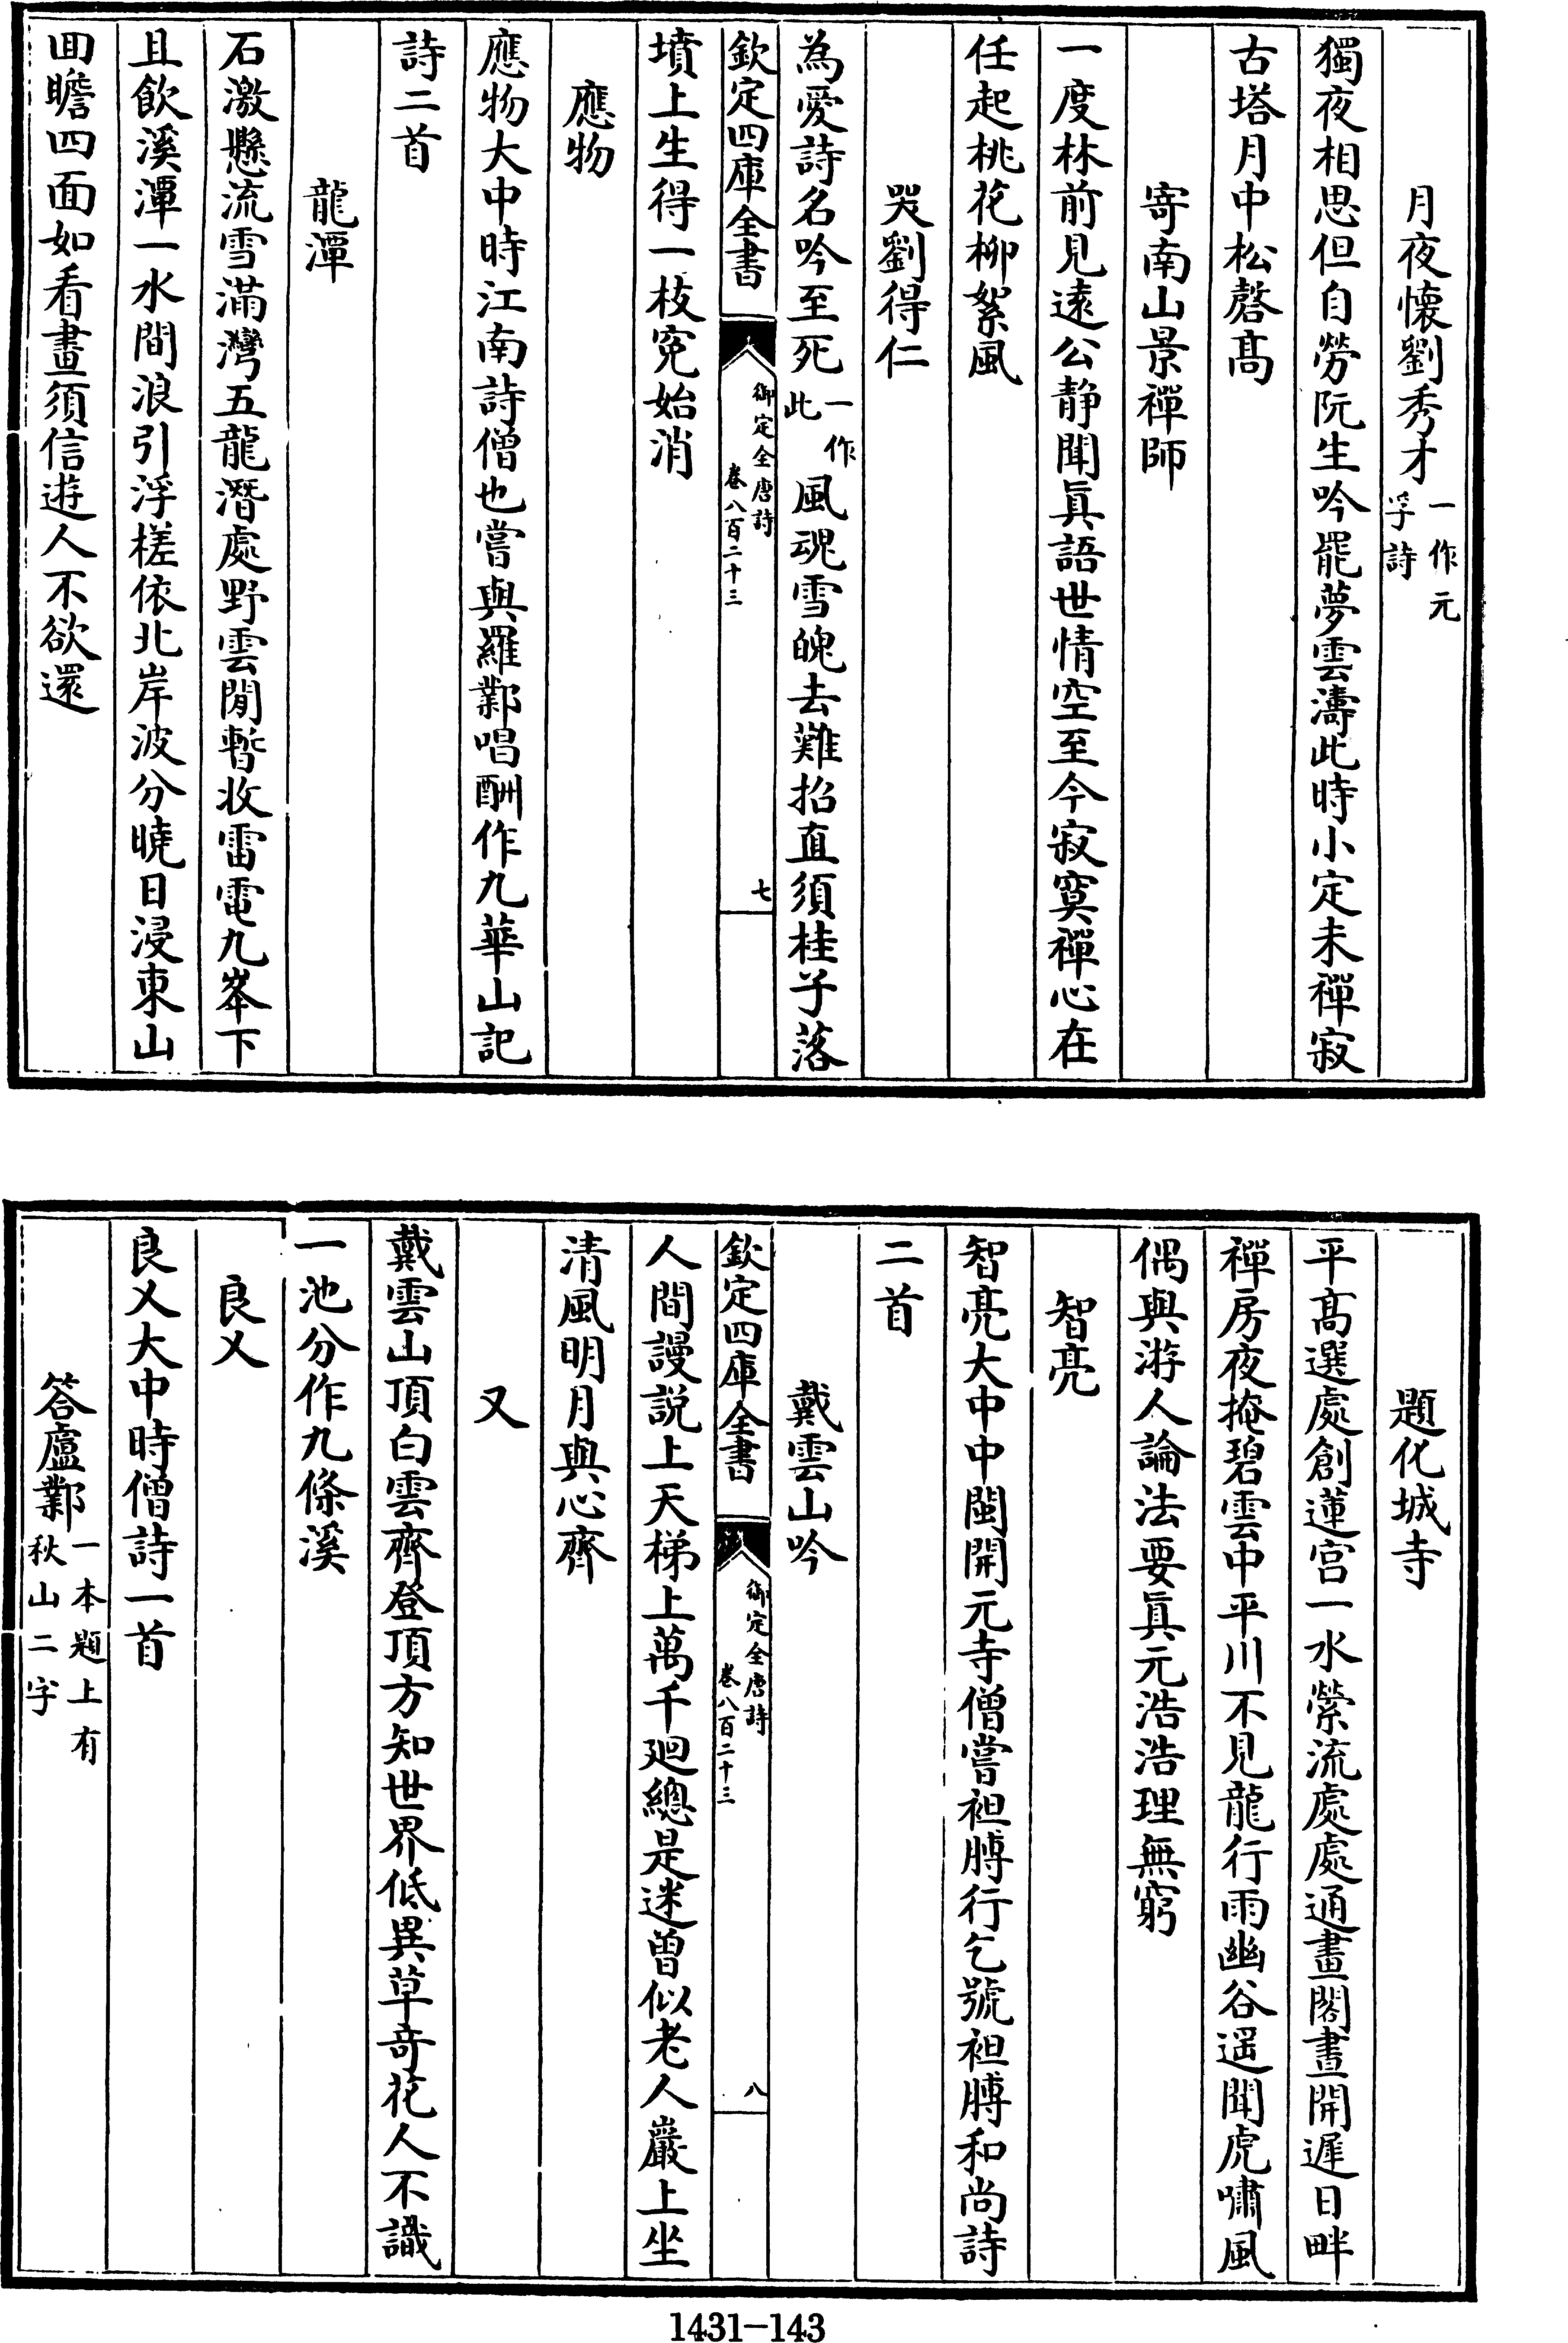 月夜懷劉秀才一作元孚詩
獨夜相思但自勞阮生吟罷夢雲濤此時小定未禪寂
古塔月中松磬髙
寄南山景禪師
一度林前見遠公静聞眞語世情空至今寂寞禪心在
任起桃花柳絮風
哭劉得仁
為愛詩名吟至死一作此風魂雪魄去難招直須桂子落
欽定四庫全書 御定全唐詩 卷八百二十三 七
墳上生得一枝寃始消
應物
應物大中時江南詩僧也嘗與羅鄴唱酬作九華山記
詩二首
龍潭
石激懸流雪滿灣五龍潛處野雲閒暫收雷電九峯下
且飲溪潭一水間浪引浮槎依北岸波分曉日浸東山
囬瞻四面如看畫須信遊人不欲還
題化城寺
平髙選處創蓮宫一水縈流處處通畫閣晝開遲日畔
禪房夜掩碧雲中平川不見龍行雨幽谷遥聞虎嘯風
偶與游人論法要眞元浩浩理無窮
智亮
智亮大中中閩開元寺僧嘗袒膊行乞號袒膊和尚詩
二首
戴雲山吟
欽定四庫全書 御定全唐詩 卷八百二十三 八
人間謾説上天梯上萬千廻總是迷曽似老人巖上坐
清風明月與心齊
又
戴雲山頂白雲齊登頂方知世界低異草奇花人不識
一池分作九條溪
良乂
良乂大中時僧詩一首
答盧鄴一本題上有秋山二字
1431-143